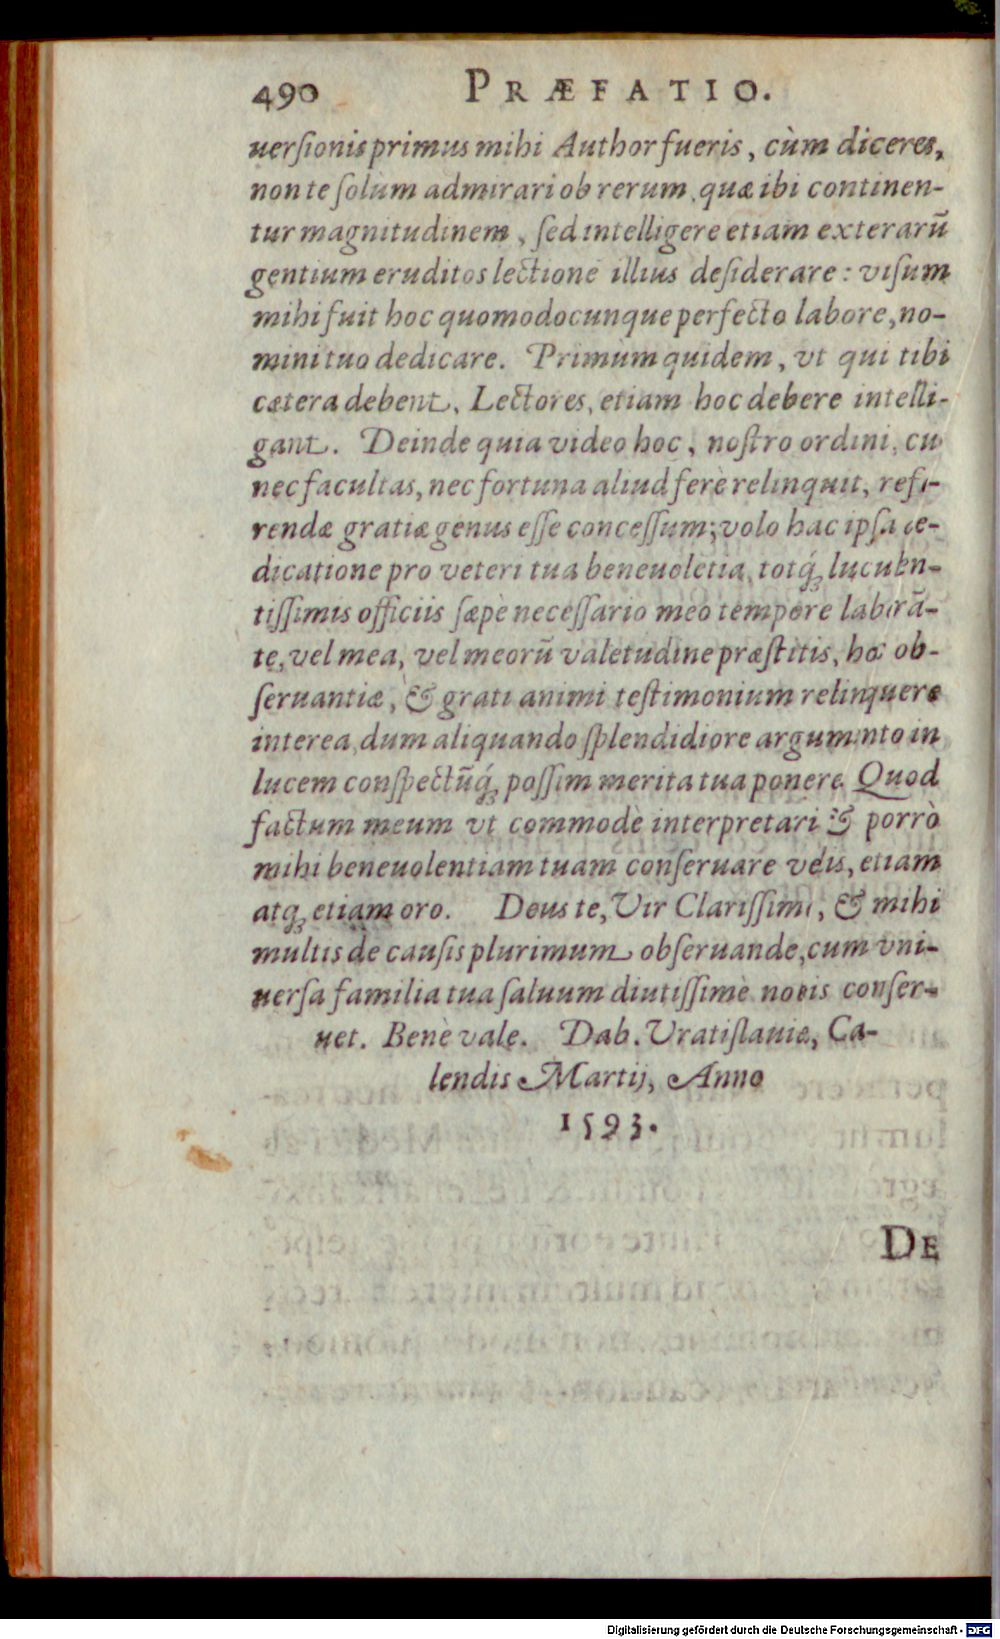 490 PRÆFATIO.
uerſionis primus mihi Author fueris, cùm diceres,
non te ſolùm admirari ob rerum, quæ ibi continen-
tur magnitudinem, ſed intelligere etiam exterarū
gentium eruditos lectione illius deſiderare: viſum
mihi fuit hoc quomodocunque perfecto labore, no-
mini tuo dedicare. Primum quidem, vt qui tibi
cætera debent, Lectores, etiam hoc debere intelli-
gant. Deinde quia video hoc, noſtro ordini, cu
nec facultas, nec fortuna aliud ferè relinquit, refe-
rendæ gratiæ genus eſſe conceſſum; volo hac ipſa de-
dicatione pro veteri tua beneuolētia, totq́ꝫ luculen-
tiſſimis officiis ſæpè neceſſario meo tempore laborā-
te, vel mea, vel meorū valetudine præſtitis, hoc ob-
ſeruantiæ, & grati animi teſtimonium relinquere
interea, dum aliquando ſplendidiore argumento in
lucem conſpectūq́ꝫ poſſim merita tua ponere. Quod
factum meum vt commodè interpretari & porrò
mihi beneuolentiam tuam conſeruare velis, etiam
atqꝫ etiam oro. Deus te, Vir Clariſſime, & mihi
multis de cauſis plurimum obſeruande, cum vni-
uerſa familia tua ſaluum diutiſſimè nobis conſer-
uet. Benè vale. Dab. Vratiſlauiæ, Ca-
lendis Martij, Anno
1593.
DE
Digitalisierung gefördert durch die Deutsche Forschungsgemeinschaft - DFG